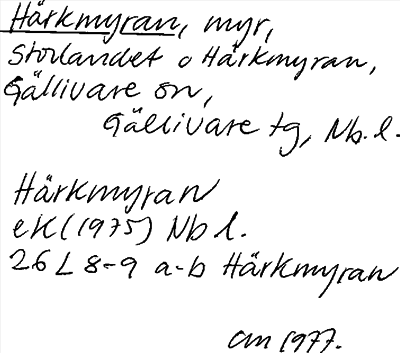 Härkmyran, myr,
Storlandet o Härkmyran,
Gällivare sn,
Gällivare tg, Nb. l.
Härkmyran
eK (1975) Nb l.
26 L 8-9 a-b Härkmyran
am 1977.